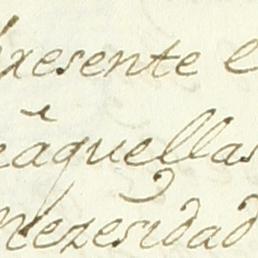 presente e
eaquellas
nezesidad